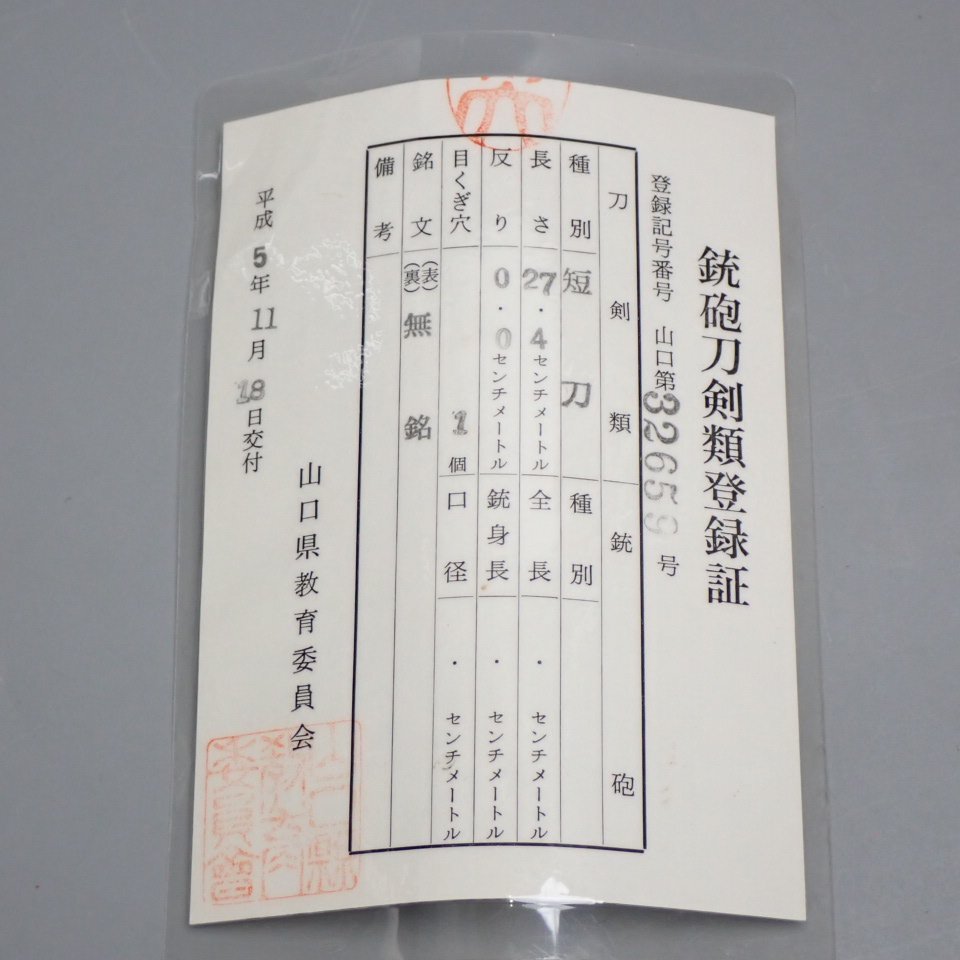 銃砲刀剣類登録証
登録記号番号 山口第32659号
刀剣類 銃砲
種別 短刀 種別
長さ 27.4センチメートル 全長 ・ センチメートル
反り 0.0センチメートル 銃身長 ・ センチメートル
目くぎ穴 1個 口径 ・ センチメートル
銘文 (表) (裏) 無銘
備考
平成5年11月18日交付
山口県教育委員会